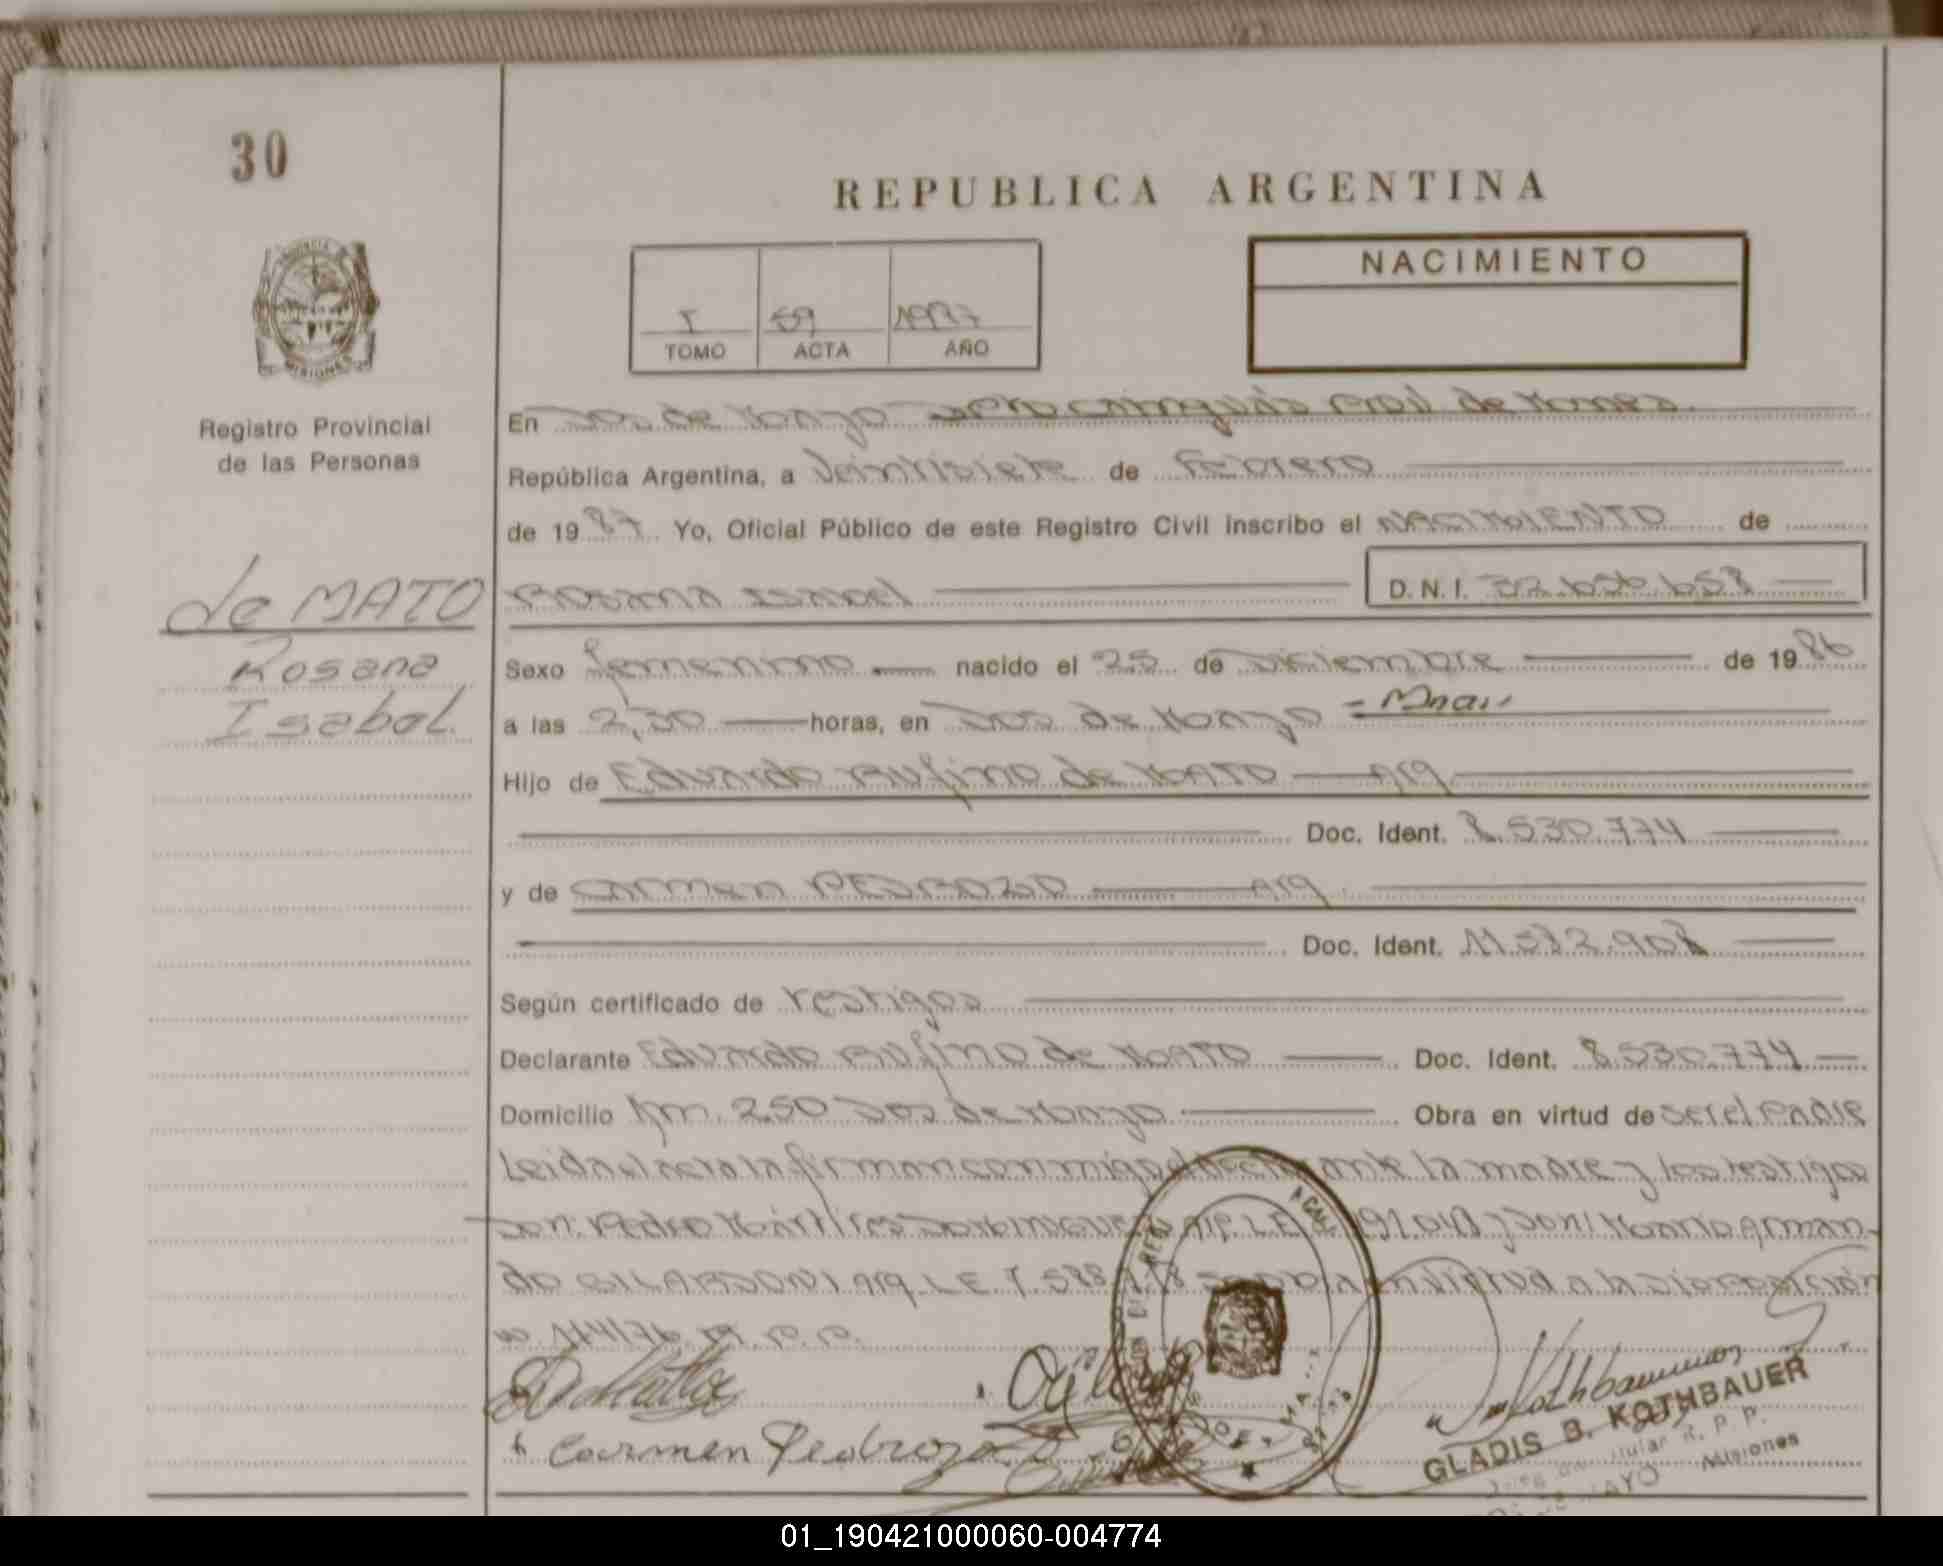 30
REPUBLICA ARGENTINA
NACIMIENTO
I 59 1987
TOMO ACTA AÑO
Registro Provincial
de las Personas
de MATO
Rosana
Isabel
En Dos de Mayo de Mones
República Argentina, a Veintisiete de Febrero
de 1987. Yo, Oficial Público de este Registro Civil inscribo el NACIMIENTO de
ROSANA ISABEL D.N.I. 32.656.658
Sexo femenino nacido el 25 de Diciembre de 1986
a las 2,30 horas, en Dos de Mayo
Hijo de Eduardo Rufino de MATO Arg
Doc. Ident. 8.530.774
y de Carmen PEDROZO Arg
Doc. Ident. 11.572.908
Según certificado de testigos
Declarante Eduardo Rufino de MATO Doc. Ident. 8.530.774
Domicilio Km. 250 Dos de Mayo Obra en virtud de ser el Padre
Leida el acta la firman conmigo el declarante la madre y los testigos
Don: Pedro DOMINGUEZ Arg. L.E. y Don: Mario Arman-
do GILARDONI Arg. L.E. en virtud a la disposición
Nº 114/76 R.P.P.
Carmen Pedrozo
GLADIS B. KOTHBAUER
R. P. P.
MAYO Misiones
01_190421000060-004774